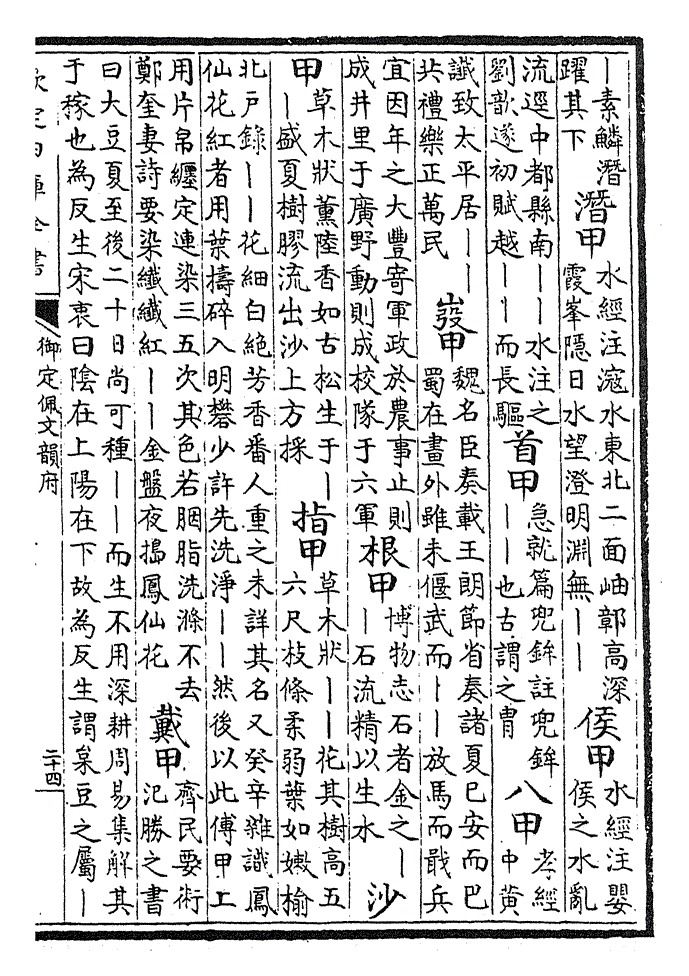 —素鱗潛
躍其下
潛甲
水經注滱水東北二面岫鄣高深
霞峯隱日水望澄明淵無——
侯甲
水經注嬰
侯之水亂
流逕中都縣南——水注之
劉歆遂初賦越——而長驅
首甲
急就篇兜鉾註兜鉾
——也古謂之胄
八甲
孝經
中黄
讖致太平居——
共禮樂正萬民
甲
魏名臣奏載王朗節省奏諸夏已安而巴
蜀在畫外雖未偃武而——放馬而戢兵
宜因年之大豐寄軍政於農事止則
成井里于廣野動則成校隊于六軍
根甲
博物志石者金之—
—石流精以生水
沙
甲
草木狀薰陸香如古松生于—
—盛夏樹膠流出沙上方採
指甲
草木狀——花其樹高五
六尺枝條柔弱葉如嫰榆
北戸錄——花細白絶芳香番人重之未詳其名又癸辛雜識鳳
仙花紅者用葉擣碎入明礬少許先洗淨——然後以此傅甲上
用片帛纏定連染三五次其色若胭脂洗滌不去
鄭奎妻詩要染纖纖紅——金盤夜搗鳳仙花
戴甲
齊民要術
氾勝之書
曰大豆夏至後二十日尚可種——而生不用深耕周易集解其
于稼也為反生宋衷曰陰在上陽在下故為反生謂枲豆之屬—
欽定四庫全書
御定佩文韻府
二十四